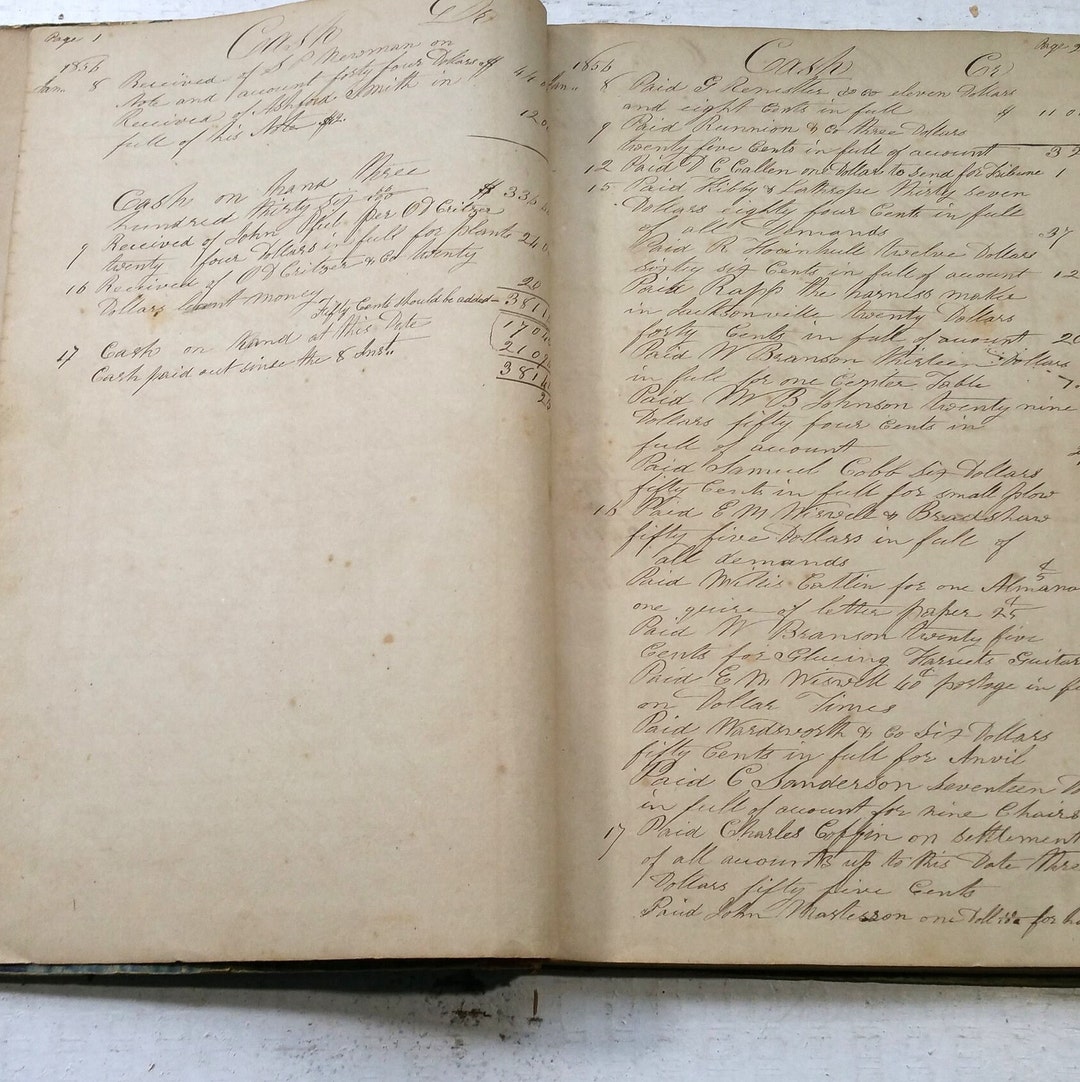 Page 1
Cash
Dr
1856
Jan.. 8 Received of S P Newman on
Note and account forty four Dollars $ 44
Received of Ashford Smith in
full of his Note 12
Cash on hand three
hundred thirty six $ 336
9 Received of John per O D Critzer
twenty four Dollars in full for plants 24
16 Received of O D Critzer & Co twenty
Dollars lent money 20
Fifty Cents should be added 381
17 Cash on hand at this Date 170
Cash paid out since the 8 Inst. 210
381
Page 2
Cash
Cr
1856
Jan.. 8 Paid G & Co eleven Dollars
and eight Cents in full $ 11 0
9 Paid Runnion & Co three Dollars
twenty five Cents in full of account 3 2
12 Paid D C Callen one Dollar to send for Tribune 1
15 Paid Kibby & Lathrope thirty seven
Dollars eighty four Cents in full
of all Demands 37
Paid R twelve Dollars
sixty six Cents in full of account 12
Paid Rapp the harness maker
in Jacksonville twenty Dollars
forty Cents in full of account 20
Paid W Branson thirteen Dollars
in full for one Center Table
Paid W B Johnson twenty nine
Dollars fifty four Cents in
full of account
Paid Samuel Cobb six Dollars
fifty Cents in full for small plow
16 Paid E M Wiswell & Bradshaw
fifty five Dollars in full of
all demands
Paid Willis Catlin for one Almana
one quire of letter paper 25
Paid W Branson twenty five
Cents for Glueing Harriets Guitar
Paid E M Wiswell 40 postage in
on Dollar Times
Paid Wardsworth & Co six Dollars
fifty Cents in full for Anvil
Paid C Sanderson seventeen
in full of account for nine Chairs
17 Paid Charles Coffin on settlement
of all accounts up to this Date thre
Dollars fifty five Cents
Paid John Masterson one Dollar for